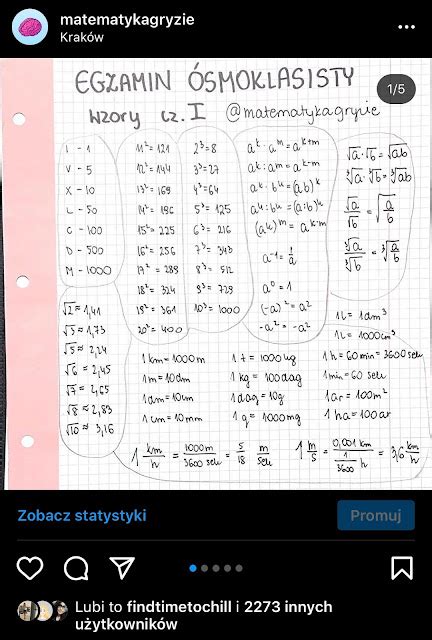 matematykagryzie
Kraków
1/5
EGZAMIN ÓSMOKLASISTY
wzory cz. I @matematykagryzie
I - 1
V - 5
X - 10
L - 50
C - 100
D - 500
M - 1000
11² = 121
12² = 144
13² = 169
14² = 196
15² = 225
16² = 256
17² = 289
18² = 324
19² = 361
20² = 400
2³ = 8
3³ = 27
4³ = 64
5³ = 125
6³ = 216
7³ = 343
8³ = 512
9³ = 729
10³ = 1000
aᵏ · aᵐ = aᵏ⁺ᵐ
aᵏ : aᵐ = aᵏ⁻ᵐ
aᵏ · bᵏ = (ab)ᵏ
aᵏ : bᵏ = (a:b)ᵏ
(aᵏ)ᵐ = aᵏ·ᵐ
a⁻¹ = 1/a
a⁰ = 1
(-a)² = a²
-a² = -a²
√a · √b = √ab
³√a · ³√b = ³√ab
√a/√b = √(a/b)
³√a/³√b = ³√(a/b)
√2 ≈ 1,41
√3 ≈ 1,73
√5 ≈ 2,24
√6 ≈ 2,45
√7 ≈ 2,65
√8 ≈ 2,83
√10 ≈ 3,16
1 km = 1000m
1 m = 10dm
1 dm = 10cm
1 cm = 10mm
1 t = 1000kg
1 kg = 100dag
1 dag = 10g
1 g = 1000mg
1l = 1dm³
1l = 1000cm³
1 h = 60min = 3600sek
1min = 60 sek
1ar = 100m²
1 ha = 100ar
1 km/h = 1000m/3600sek = 5/18 m/sek
1 m/s = 0,001 km/(1/3600 h) = 3,6 km/h
Zobacz statystyki
Promuj
Lubi to findtimetochill i 2273 innych
użytkowników